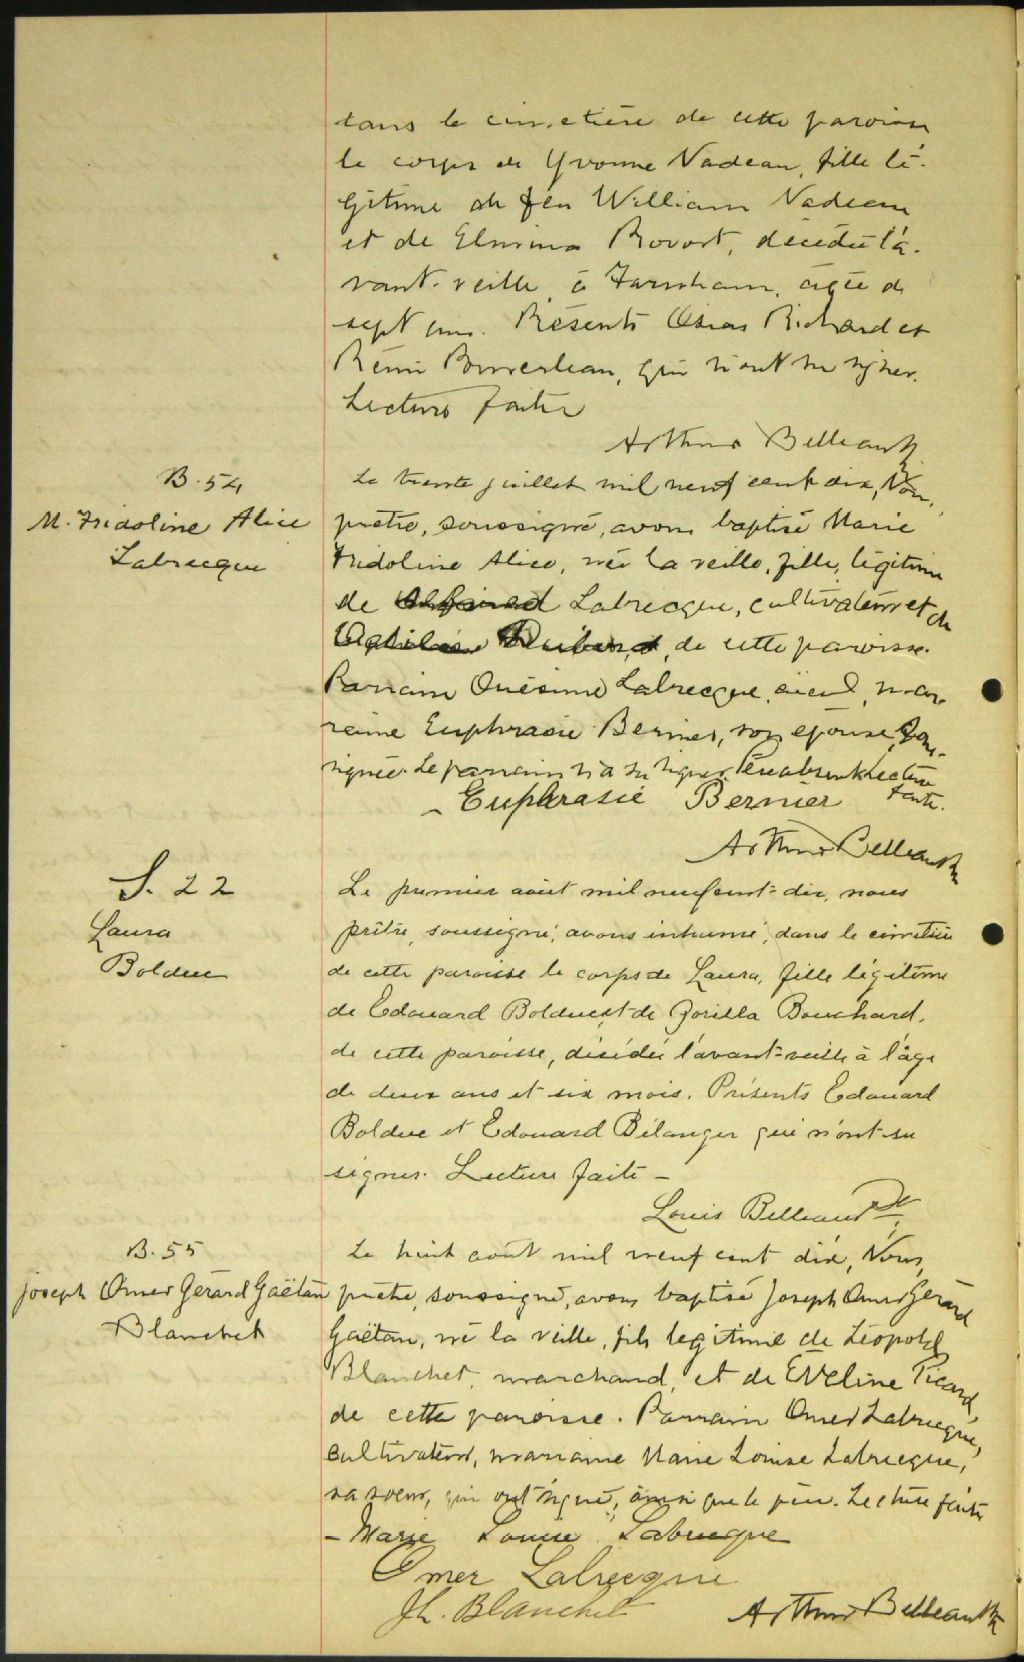 dans le cimetière de cette paroisse
le corps de Yvonne Nadeau, fille lé-
gitime de feu William Nadeau
et de Elmina Provost, décédée l'a-
vant-veille, à Farnham, âgée de
sept ans. Présents Osias Richard et
Rémi, qui n'ont su signer.
Lecture faite
Arthur Belleau Ptr
B. 54
M. Fridoline Alice
Labrecque
Le trente juillet mil neuf cent dix, Nous,
prêtre, soussigné, avons baptisé Marie
Fridoline Alice, née la veille, fille légitime
de Labrecque, cultivateur et de
de cette paroisse.
Parrain Onésime Labrecque, aïeul, mar-
raine Euphrasie Bernier, son épouse, sous-
signée. Le parrain n'a su signer. Père absent. Lecture
faite.
Euphrasie Bernier
Arthur Belleau Ptr
S. 22
Laura
Bolduc
Le premier août mil neuf cent-dix, nous
prêtre, soussigné, avons inhumé, dans le cimetière
de cette paroisse le corps de Laura, fille légitime
de Edouard Bolduc et de Zorilla Bouchard,
de cette paroisse, décédée l'avant-veille à l'âge
de deux ans et six mois. Présents Edouard
Bolduc et Edouard Bélanger qui n'ont su
signer. Lecture faite -
Louis Belleau Ptr
B. 55
Joseph Omer Gérard Gaëtan
Blanchet
Le huit août mil neuf cent dix, Nous,
prêtre, soussigné, avons baptisé Joseph Omer Gérard
Gaëtan, né la veille, fils légitime de Léopold
Blanchet, marchand, et de Eveline Picard,
de cette paroisse. Parrain Omer Labrecque,
cultivateur, marraine Marie Louise Labrecque,
sa soeur, qui ont signé, ainsi que le père. Lecture faite
- Marie Louise Labrecque
Omer Labrecque
Jh. Blanchet
Arthur Belleau Ptr